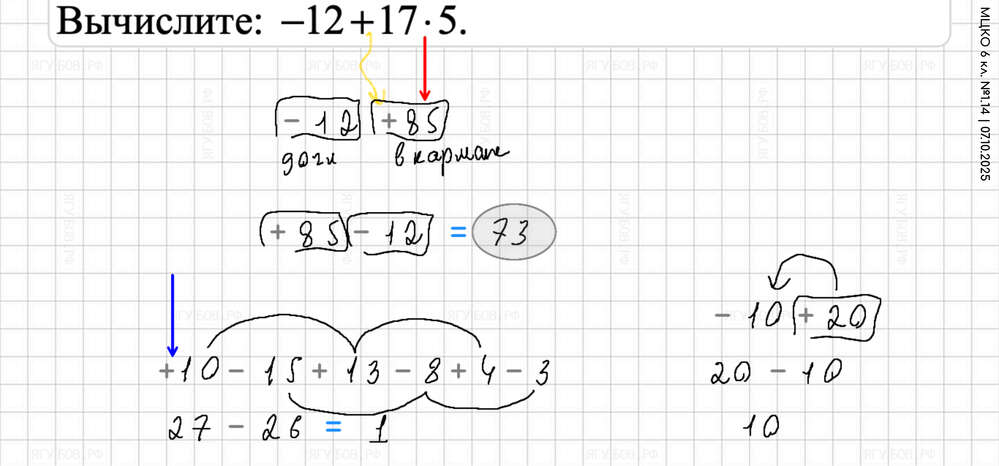 Вычислите: −12+17·5.
− 12 + 85
долги в кармане
+ 85 − 12 = 73
− 10 + 20
+10 − 15 + 13 − 8 + 4 − 3
20 − 10
27 − 26 = 1
10
МЦКО 6 кл. №1.14 | 07.10.2025
ЯГУБОВ.РФ